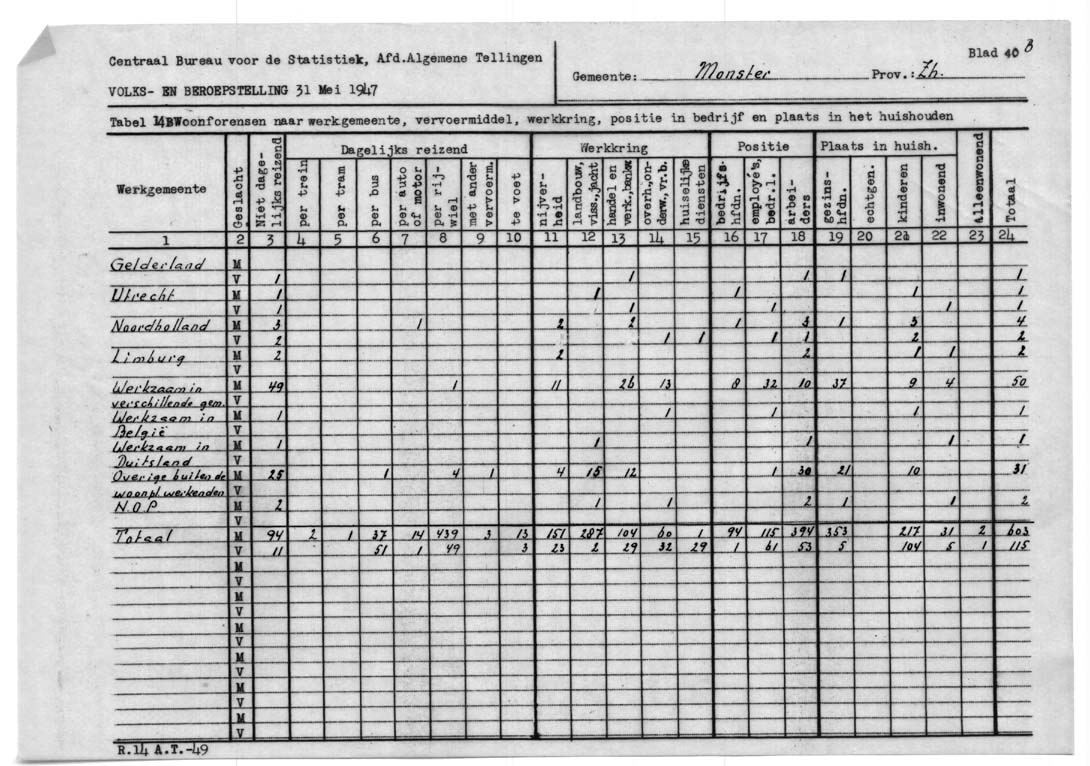 Centraal Bureau voor de Statistiek, Afd.Algemene Tellingen
VOLKS- EN BEROEPSTELLING 31 Mei 1947
Gemeente: Monster Prov.: Zh.
Blad 40 B
Tabel 14B Woonforensen naar werkgemeente, vervoermiddel, werkkring, positie in bedrijf en plaats in het huishouden
Werkgemeente | Geslacht | Niet dagelijks reizend | Dagelijks reizend | Werkkring | Positie | Plaats in huish. | alleenwonend | Totaal
per trein | per tram | per bus | per auto of motor | per rij-wiel | met ander vervoerm. | te voet | nijver-heid | landbouw, viss.,jacht | handel en verk.,bankw | overh.,on-derw.,vr.b. | huiselijke diensten | bedrijfs-hfdn. | employé's, bedr.l. | arbei-ders | gezins-hfdn. | echtgen. | kinderen | inwonend
1 2 3 4 5 6 7 8 9 10 11 12 13 14 15 16 17 18 19 20 21 22 23 24
Gelderland M
V 1 1 1 1 1
Utrecht M 1 1 1 1 1
V 1 1 1 1 1
Noordholland M 3 1 2 2 1 3 1 3 4
V 2 1 1 1 1 2 2
Limburg M 2 2 2 1 1 2
V
Werkzaam in M 49 1 11 26 13 8 32 10 37 9 4 50
verschillende gem. V
Werkzaam in M 1 1 1 1 1
België V
Werkzaam in M 1 1 1 1 1
Duitsland V
Overige buiten de M 25 1 4 1 4 15 12 1 30 21 10 31
woonpl. werkenden V
N.O.P M 2 1 1 2 1 1 2
V
Totaal M 94 2 1 37 14 439 3 13 151 287 104 60 1 94 115 394 353 217 31 2 603
V 11 51 1 49 3 23 2 29 32 29 1 61 53 5 104 5 1 115
M
V
M
V
M
V
M
V
M
V
M
V
R.14 A.T.-49